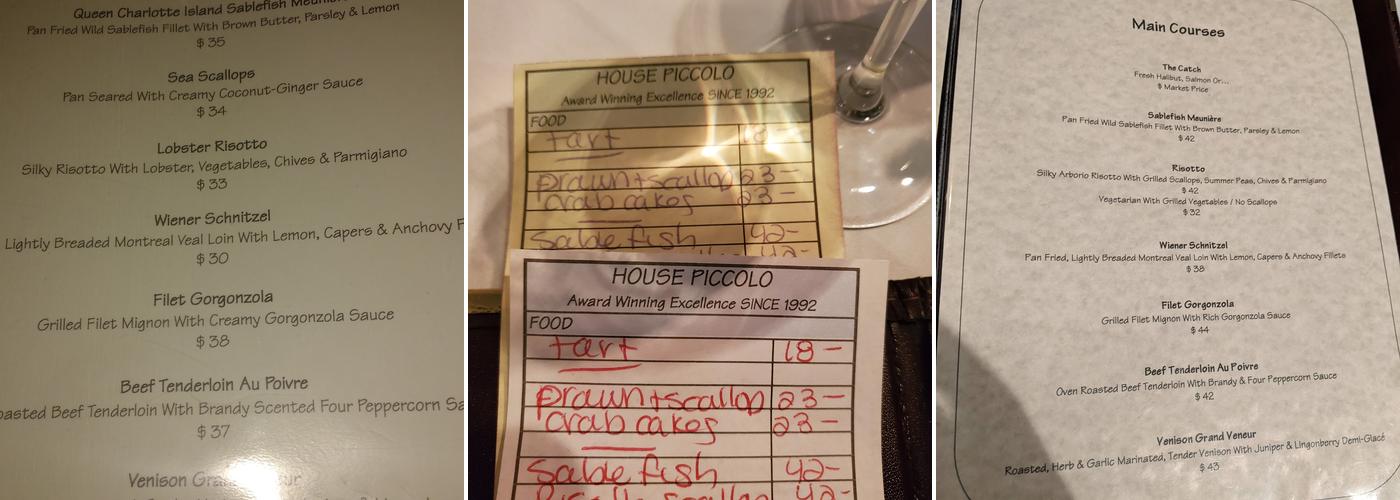 Queen Charlotte Island Sablefish Meunière
Pan Fried Wild Sablefish Fillet With Brown Butter, Parsley & Lemon
$ 35
Sea Scallops
Pan Seared With Creamy Coconut-Ginger Sauce
$ 34
Lobster Risotto
Silky Risotto With Lobster, Vegetables, Chives & Parmigiano
$ 33
Wiener Schnitzel
Lightly Breaded Montreal Veal Loin With Lemon, Capers & Anchovy F
$ 30
Filet Gorgonzola
Grilled Filet Mignon With Creamy Gorgonzola Sauce
$ 38
Beef Tenderloin Au Poivre
oasted Beef Tenderloin With Brandy Scented Four Peppercorn Sa
$ 37
Venison
HOUSE PICCOLO
Award Winning Excellence SINCE 1992
FOOD
tart 18 -
prawn+scallop 23 -
crab cakes 23 -
Sable fish 42-
42-
HOUSE PICCOLO
Award Winning Excellence SINCE 1992
FOOD
tart 18 -
prawn+scallop 23 -
crab cakes 23 -
Sable fish 42-
scallop 42-
Main Courses
The Catch
Fresh Halibut, Salmon Or...
$ Market Price
Sablefish Meunière
Pan Fried Wild Sablefish Fillet With Brown Butter, Parsley & Lemon
$ 42
Risotto
Silky Arborio Risotto With Grilled Scallops, Summer Peas, Chives & Parmigiano
$ 42
Vegetarian With Grilled Vegetables / No Scallops
$ 32
Wiener Schnitzel
Pan Fried, Lightly Breaded Montreal Veal Loin With Lemon, Capers & Anchovy Fillets
$ 38
Filet Gorgonzola
Grilled Filet Mignon With Rich Gorgonzola Sauce
$ 44
Beef Tenderloin Au Poivre
Oven Roasted Beef Tenderloin With Brandy & Four Peppercorn Sauce
$ 42
Venison Grand Veneur
Roasted, Herb & Garlic Marinated, Tender Venison With Juniper & Lingonberry Demi-Glacé
$ 43